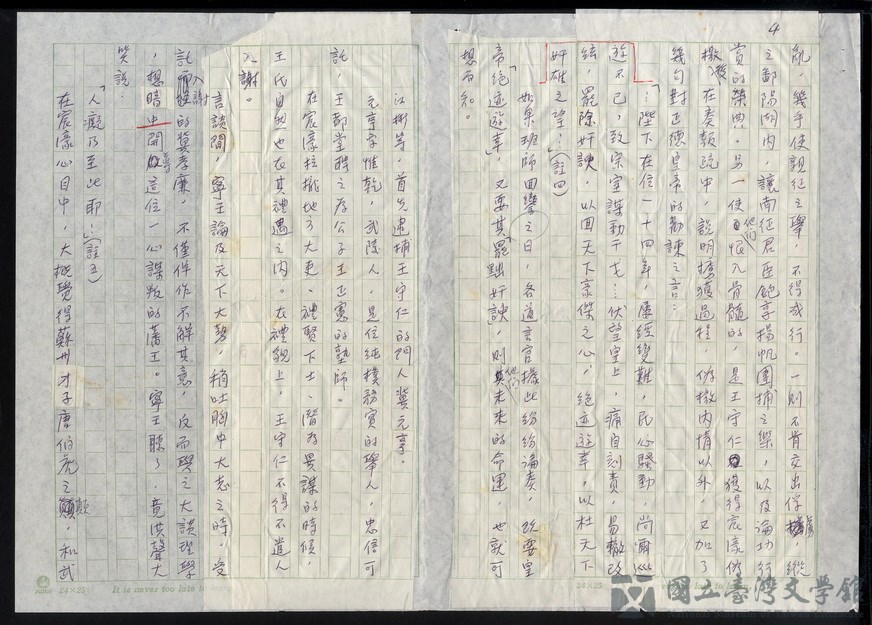 4
亂，幾乎使親征之舉，不得成行。一則不肯交出俘擄，縱
之鄱陽湖內，讓南征君臣飽享揚帆圍捕之樂，以及論功行
賞的榮典。另一使他們恨入骨髓的，是王守仁獲得宸濠偽
檄後，在奏報疏中，說明擄獲過程，偽檄內情以外，又加了
幾句對正德皇帝的勸諫之言：
「…陛下在位一十四年，屢經變難，民心騷動，尚爾巡
遊不已，致宗室謀動干戈…伏望皇上，痛自刻責，易轍改
絃，罷除奸諛，以回天下豪傑之心，絕迹遊幸，以杜天下
奸雄之望…」（註四）
如果班師回鑾之日，各道言官據此紛紛論奏，既要皇
帝「絕迹遊幸」，又要其「罷黜奸諛」，則他們未來的命運，也就可
想而知。
江彬等，首先逮捕王守仁的門人冀元亨。
元亨字惟乾，武陵人，是位純樸務實的舉人，忠信可
託，王都堂聘之為公子王正憲的塾師。
在宸濠拉攏地方大吏、禮賢下士、潛為異謀的時候，
王氏自然也在其禮遇之內。在禮貌上，王守仁不得不遣人
入謝。
言談間，寧王論及天下大勢，稍吐胸中大志之時，受
託入謝的冀孝廉，不僅佯作不解其意，反而與之大談理學
，想暗中開導這位一心謀叛的藩王。寧王聽了，竟洪聲大
笑說：
「人癡乃至此耶…」（註五）
在宸濠心目中，大概覺得蘇州才子唐伯虎之顛，和武
24×25
It is never too late to
24×25
國立臺灣文學館